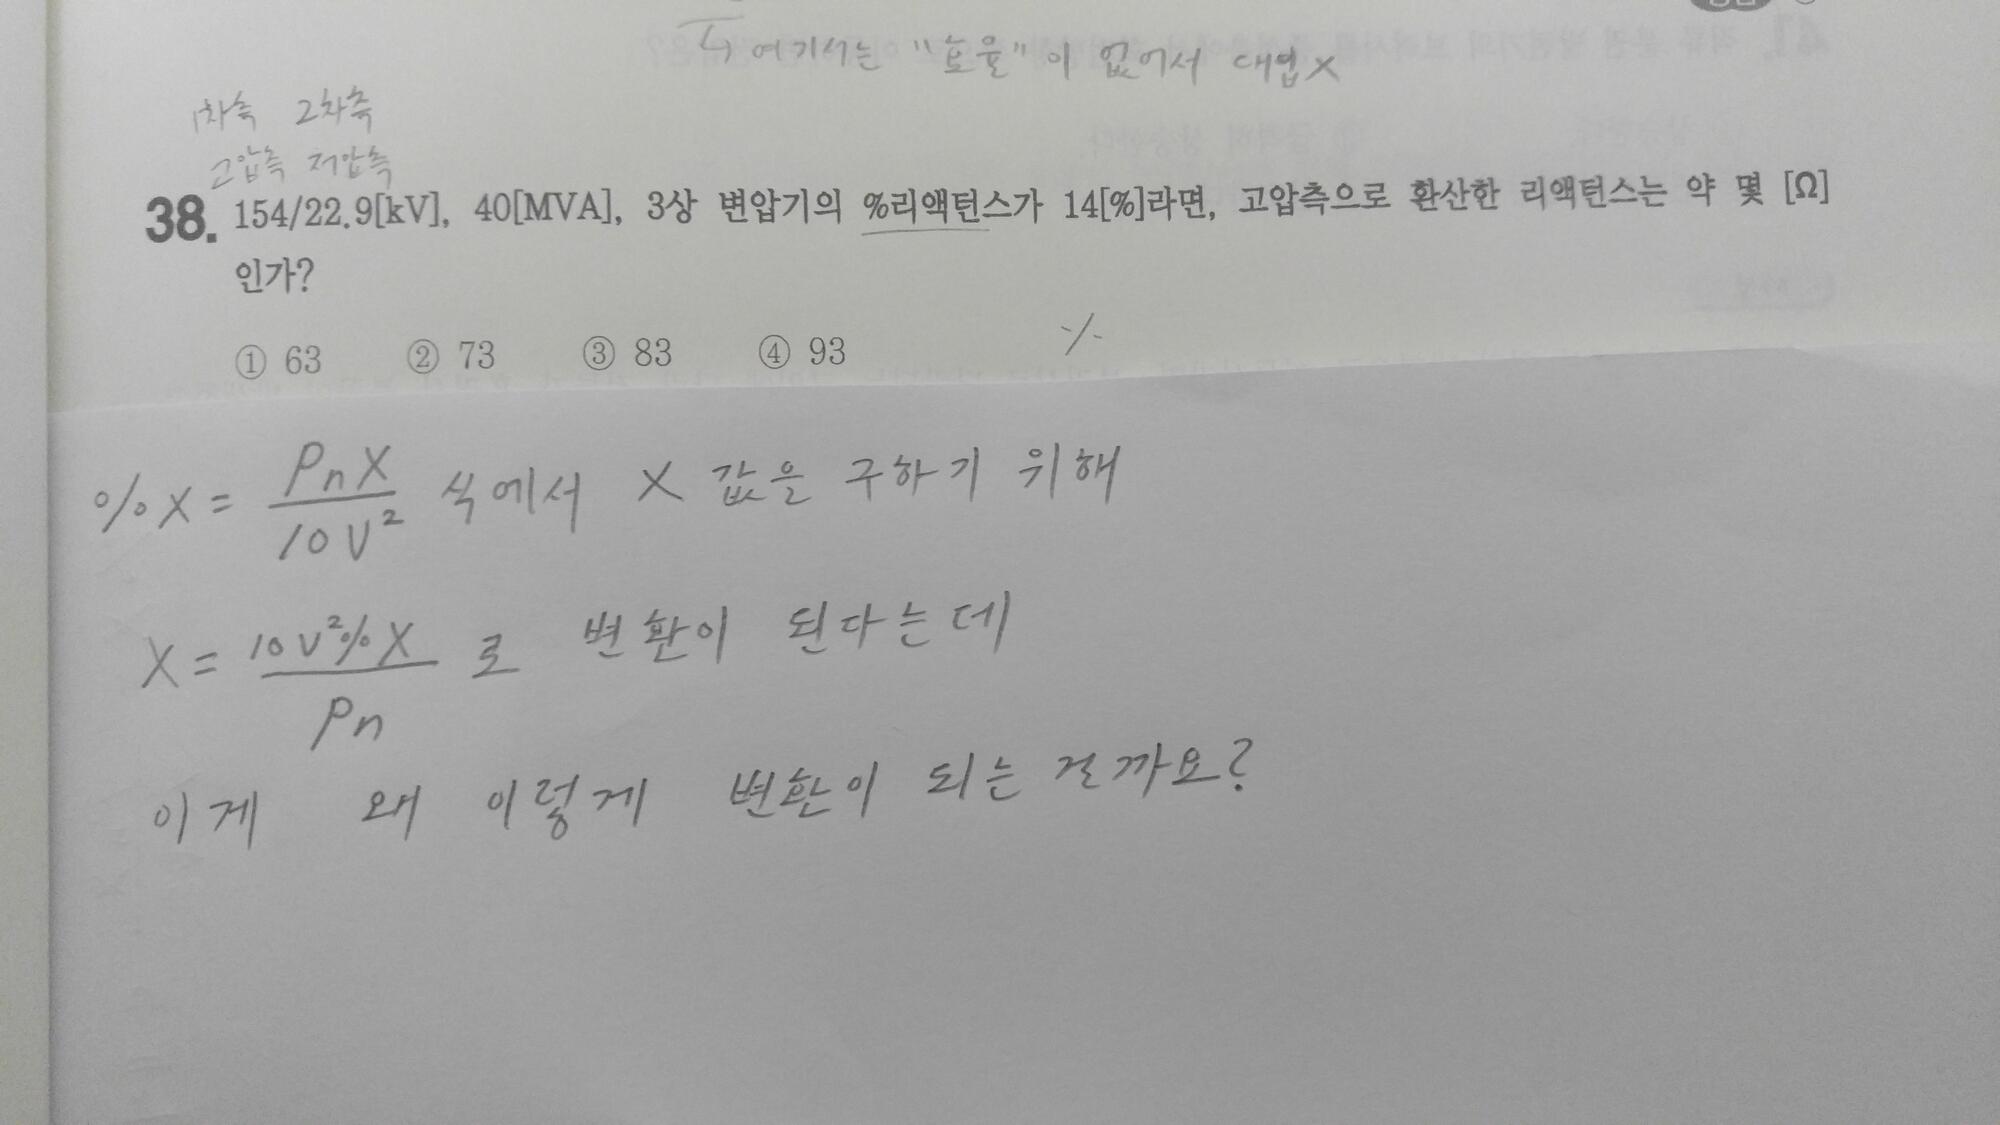 ↳ 여기서는 "효율"이 없어서 대입X
1차측 2차측
고압측 저압측
38. 154/22.9[kV], 40[MVA], 3상 변압기의 %리액턴스가 14[%]라면, 고압측으로 환산한 리액턴스는 약 몇 [Ω]
인가?
① 63 ② 73 ③ 83 ④ 93
%
%X = PnX / 10V² 식에서 X 값을 구하기 위해
X = 10V²%X / Pn 로 변환이 된다는데
이게 왜 이렇게 변환이 되는 건까요?